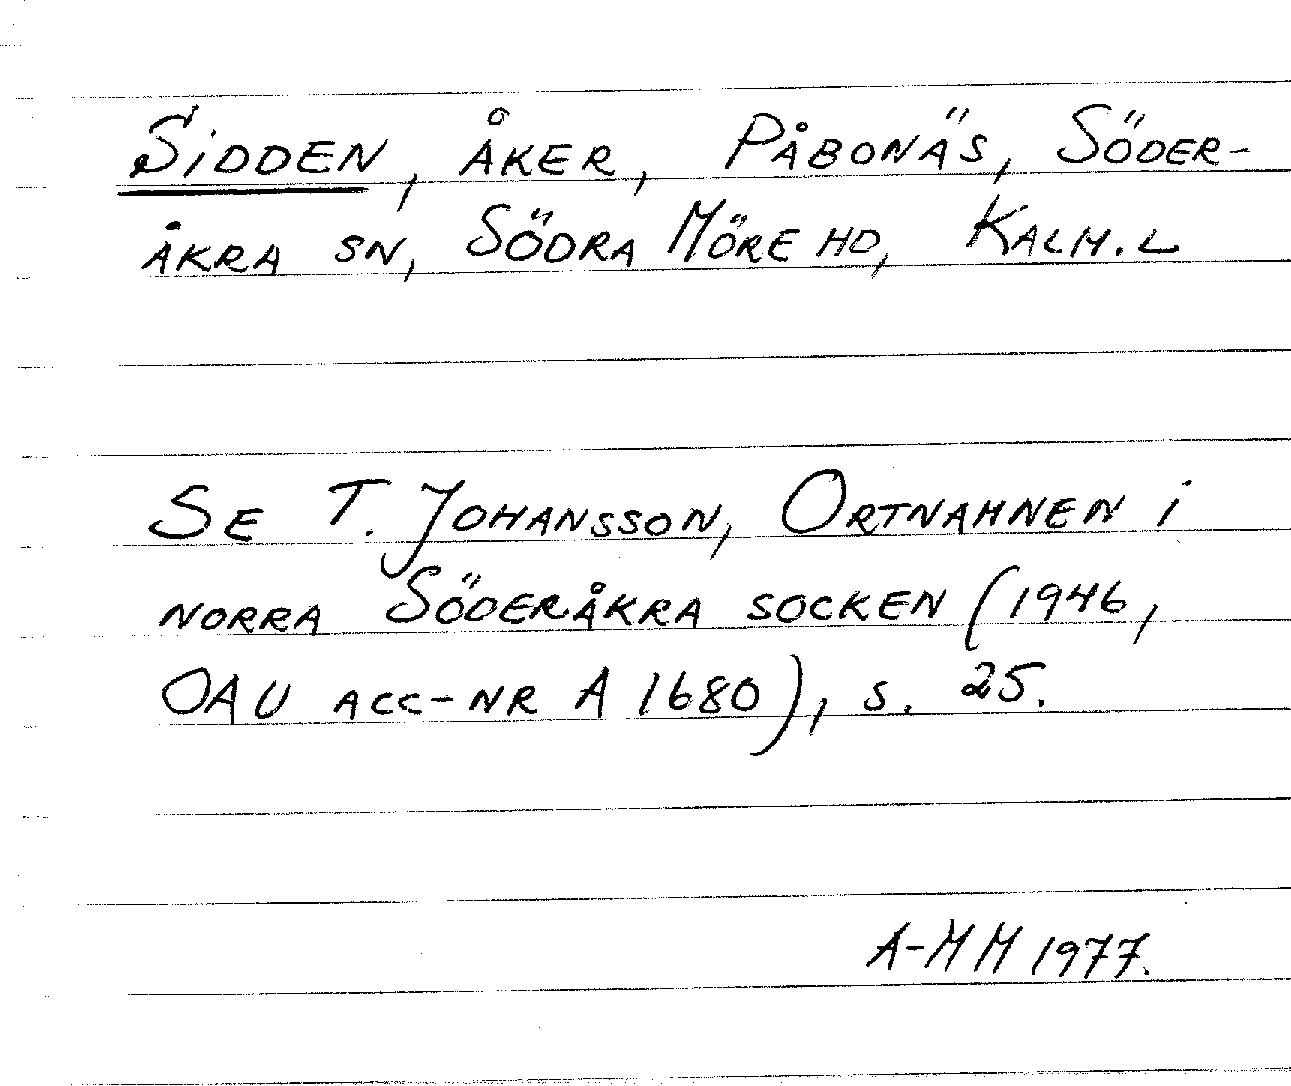 Sidden, åker, Påbonäs, Söder-
åkra sn, Södra Möre hd, Kalm. l
Se T. Johansson, Ortnamnen i
norra Söderåkra socken (1946,
OAU acc-nr A 1680), s. 25.
A-MM 1977.